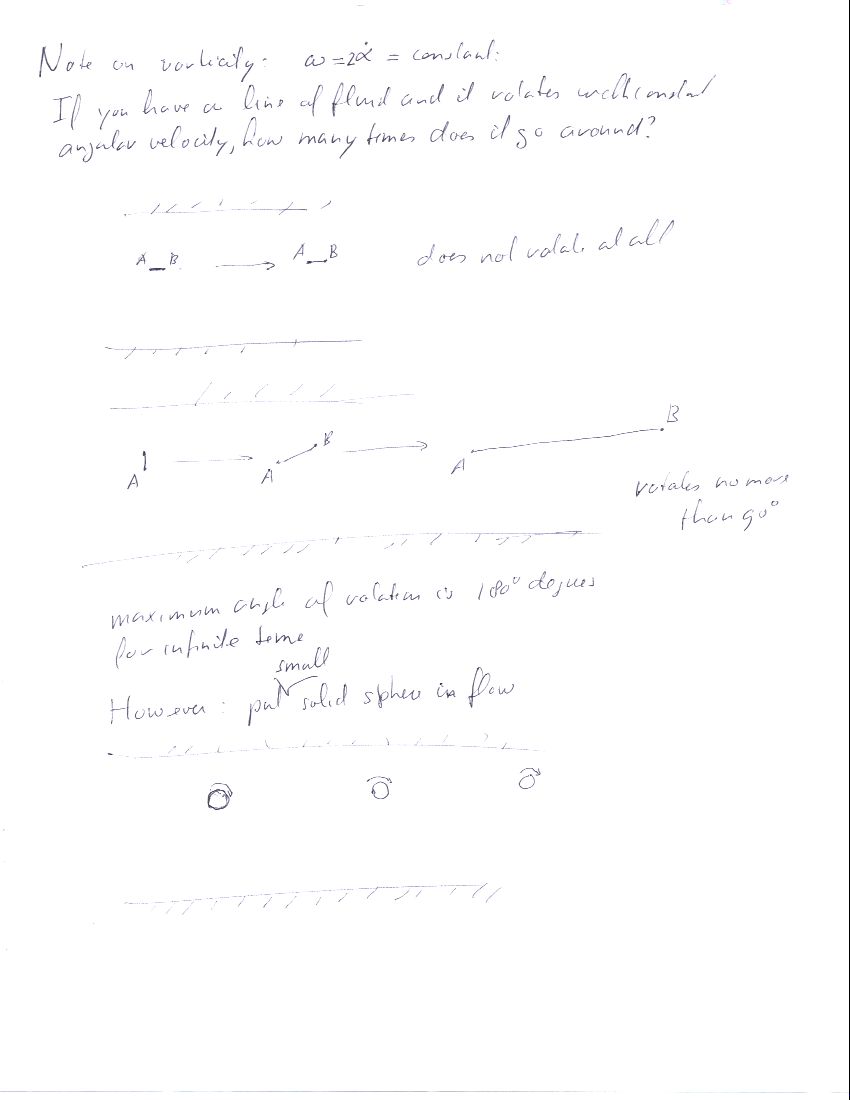 Note on vorticity: ω = 2α̇ = constant:
If you have a line of fluid and it rotates with constant
angular velocity, how many times does it go around?
A B A B does not rotate at all
B
A A B A
rotates no more
than 90°
maximum angle of rotation is 180° degrees
for infinite time
small
However: put solid sphere in flow